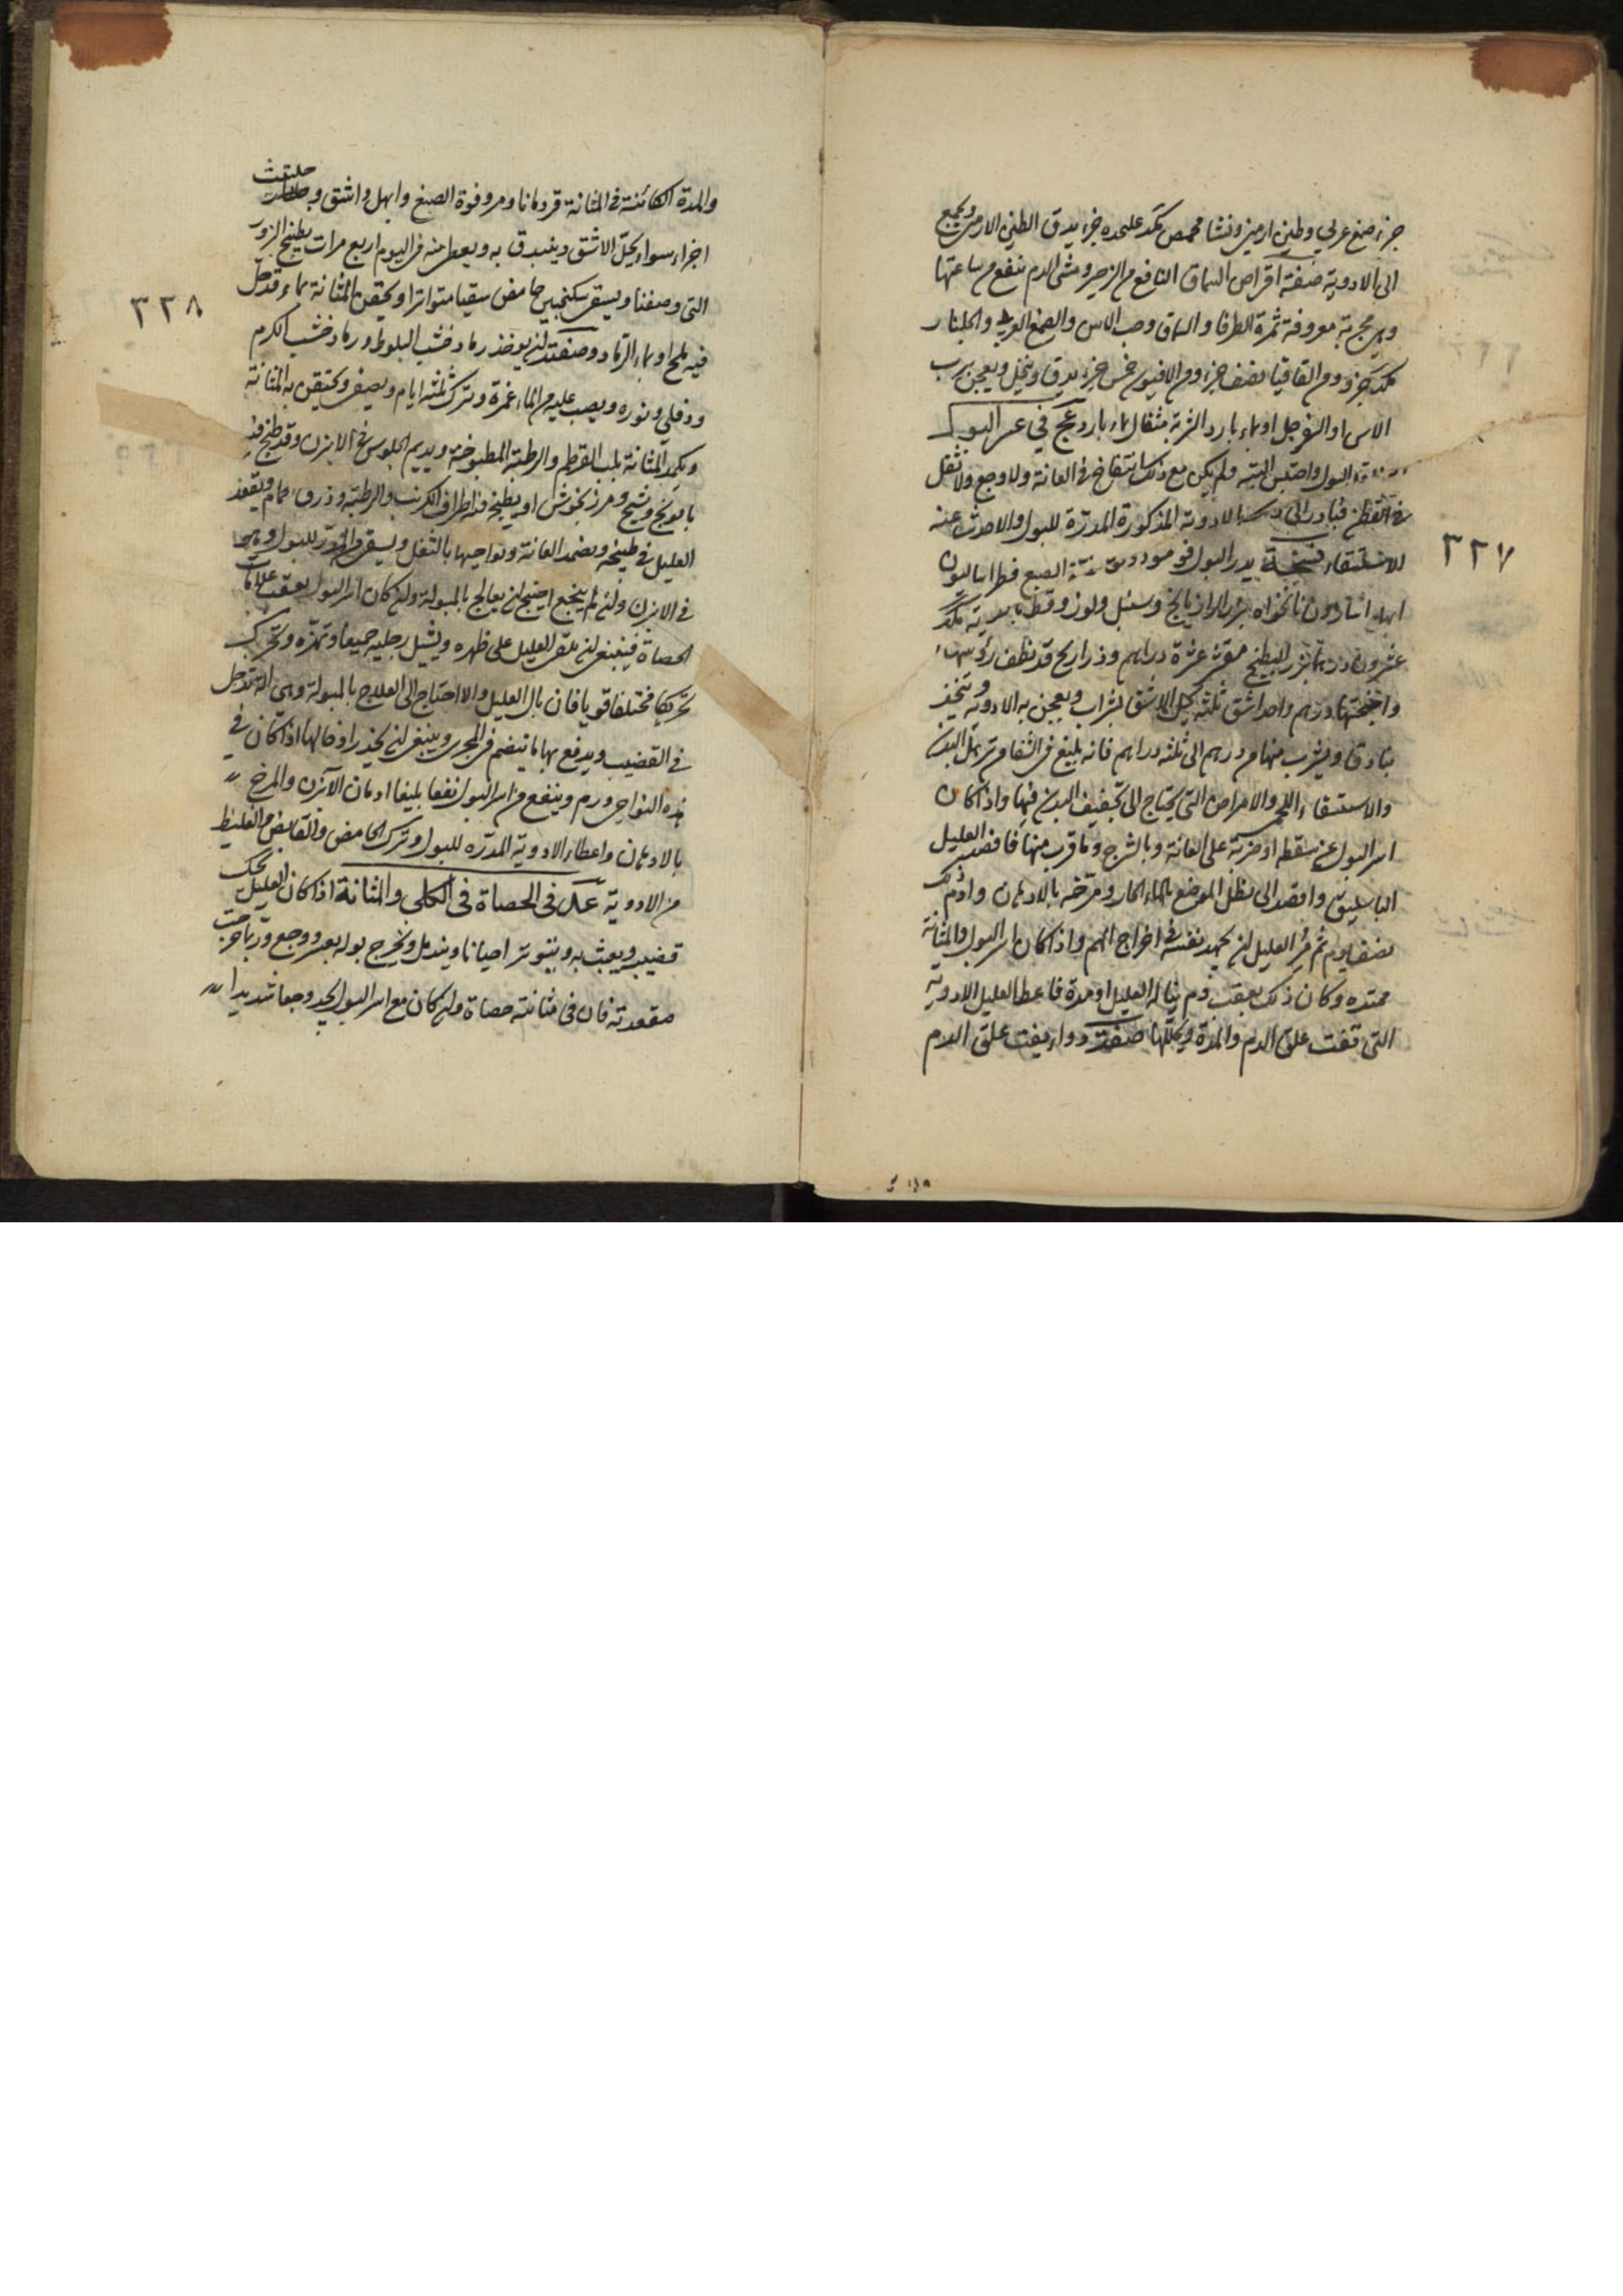 جزء صمغ عربي وطين ارمني ونشا محمص مكد عليحده جزء يدق الطين الارمني ويجمع
الى الادوية صفة اقراص السماق النافع من الزحير ومشى الدم تنفع من ساعتها
وهي مجربة معروفة ثمرة الطرفا والسماق وحب الاس والصمغ العربي والجلنار
مكد جزء ومن القاقيا نصف جزء ومن الافيون خمس جزء يدق وينخل ويعجن برب
الاس او السفرجل او بماء بارد الشربة مثقال بماء بارد علاج في عسر البول
البول واحتبس البتة ولم يكن مع ذلك انتفاخ في العانة ولا وجع ولا ثقل
في القطن فبادر الى بالادوية المذكورة المدرة للبول والا حدث عنه
الاستسقاء نسخة يدر البول فو مو دوقو الصبغ فطراساليون
ابهل اسارون نانخواه بزر الرازيانج وسنبل ولوز وقسط مكد
عشرون درهما بزر البطيخ مقشر عشرة دراهم وذراريح قد نظف رؤسها
واجنحتها درهم واحد اشق ثلثة يحل الاشق بشراب ويعجن به الادوية ويتخذ
بنادقا ويشرب منها من درهم الى ثلثة دراهم فانه بليغ في الشفا من ترهل البدن
والاستسقاء اللحمي والامراض التي يحتاج الى تجفيف البدن فيها واذا كان
اسر البول عن سقطة او ضربة على العانة وبالشرج وما قرب منها فافصد العليل
الباسليق واقصد الى نطل الموضع بالماء الحار ومرخه بالادهان وادم ذلك
نصف يوم ثم مر العليل ان يجهد نفسه في اخراج الهم واذا كان اسر البول والمثانة
ممتده وكان ذلك بعقب دم يباله العليل او مدة فاعط العليل الادوية
التي تفت علق الدم والمدة وتحللها صفة دواء يفت علق الدم
٣٢٧
والمدة الكائنة في المثانة قردمانا ومر وفوة الصبغ وابهل واشق وحلتيت
اجزاء سواء يحل الاشق ويبندق به ويعطى منه في اليوم اربع مرات بطبيخ البزور
التي وصفنا ويسقى سكنجبين حامض سقيا متواترا ويحقن المثانة بماء قد حل
فيه ملح او بماء الرماد وصفته ان يوخذ رماد خشب البلوط ورماد خشب الكرم
ودفلى ونوره ويصب عليه من الماء غمرة وترك ثلثة ايام ويصفى ويحتقن به المثانة
ويكمد المثانة بلب القرطم والرطبة المطبوخة ويديم الجلوس في الابزن وقد طبخ فيه
بابونج وشيح ومرزنجوش او يطبخ فيه اطراف الكرنب والرطبة وذرق حمام ويقعد
العليل في طبيخه ويضمد العانة ونواحيها بالثفل ويسقى المدر للبول وهو
في الابزن وان لم ينجع احتيج ان يعالج بالمبولة وان كان اسر البول بعقب علامات
الحصاة فينبغي ان يلقى العليل على ظهره ويشيل رجليه جميعا وتهزه وتحرك
تحريكا مختلفا قويا فان بال العليل والا احتاج الى العلاج بالمبولة وهي الة تدخل
في القضيب ويدفع بها ما ينضم في المجرى وينبغي ان يحذر ادخالها اذا كان في
هذه النواحي ورم وينفع من اسر البول نفعا بليغا ادمان الآبزن والمرخ
بالادهان واعطاء الادوية المدره للبول وترك الحامض والقابض والغليظ
من الادوية علاج في الحصاة في الكلى والمثانة اذا كان العليل يحك
قضيبه ويعبث به ويتوتر احيانا ويندمل ويخرج بوله بعسر ووجع وربما خرجت
مقعدته فان في مثانته حصاة وان كان مع اسر البول يجد وجعا شديدا
٣٢٨